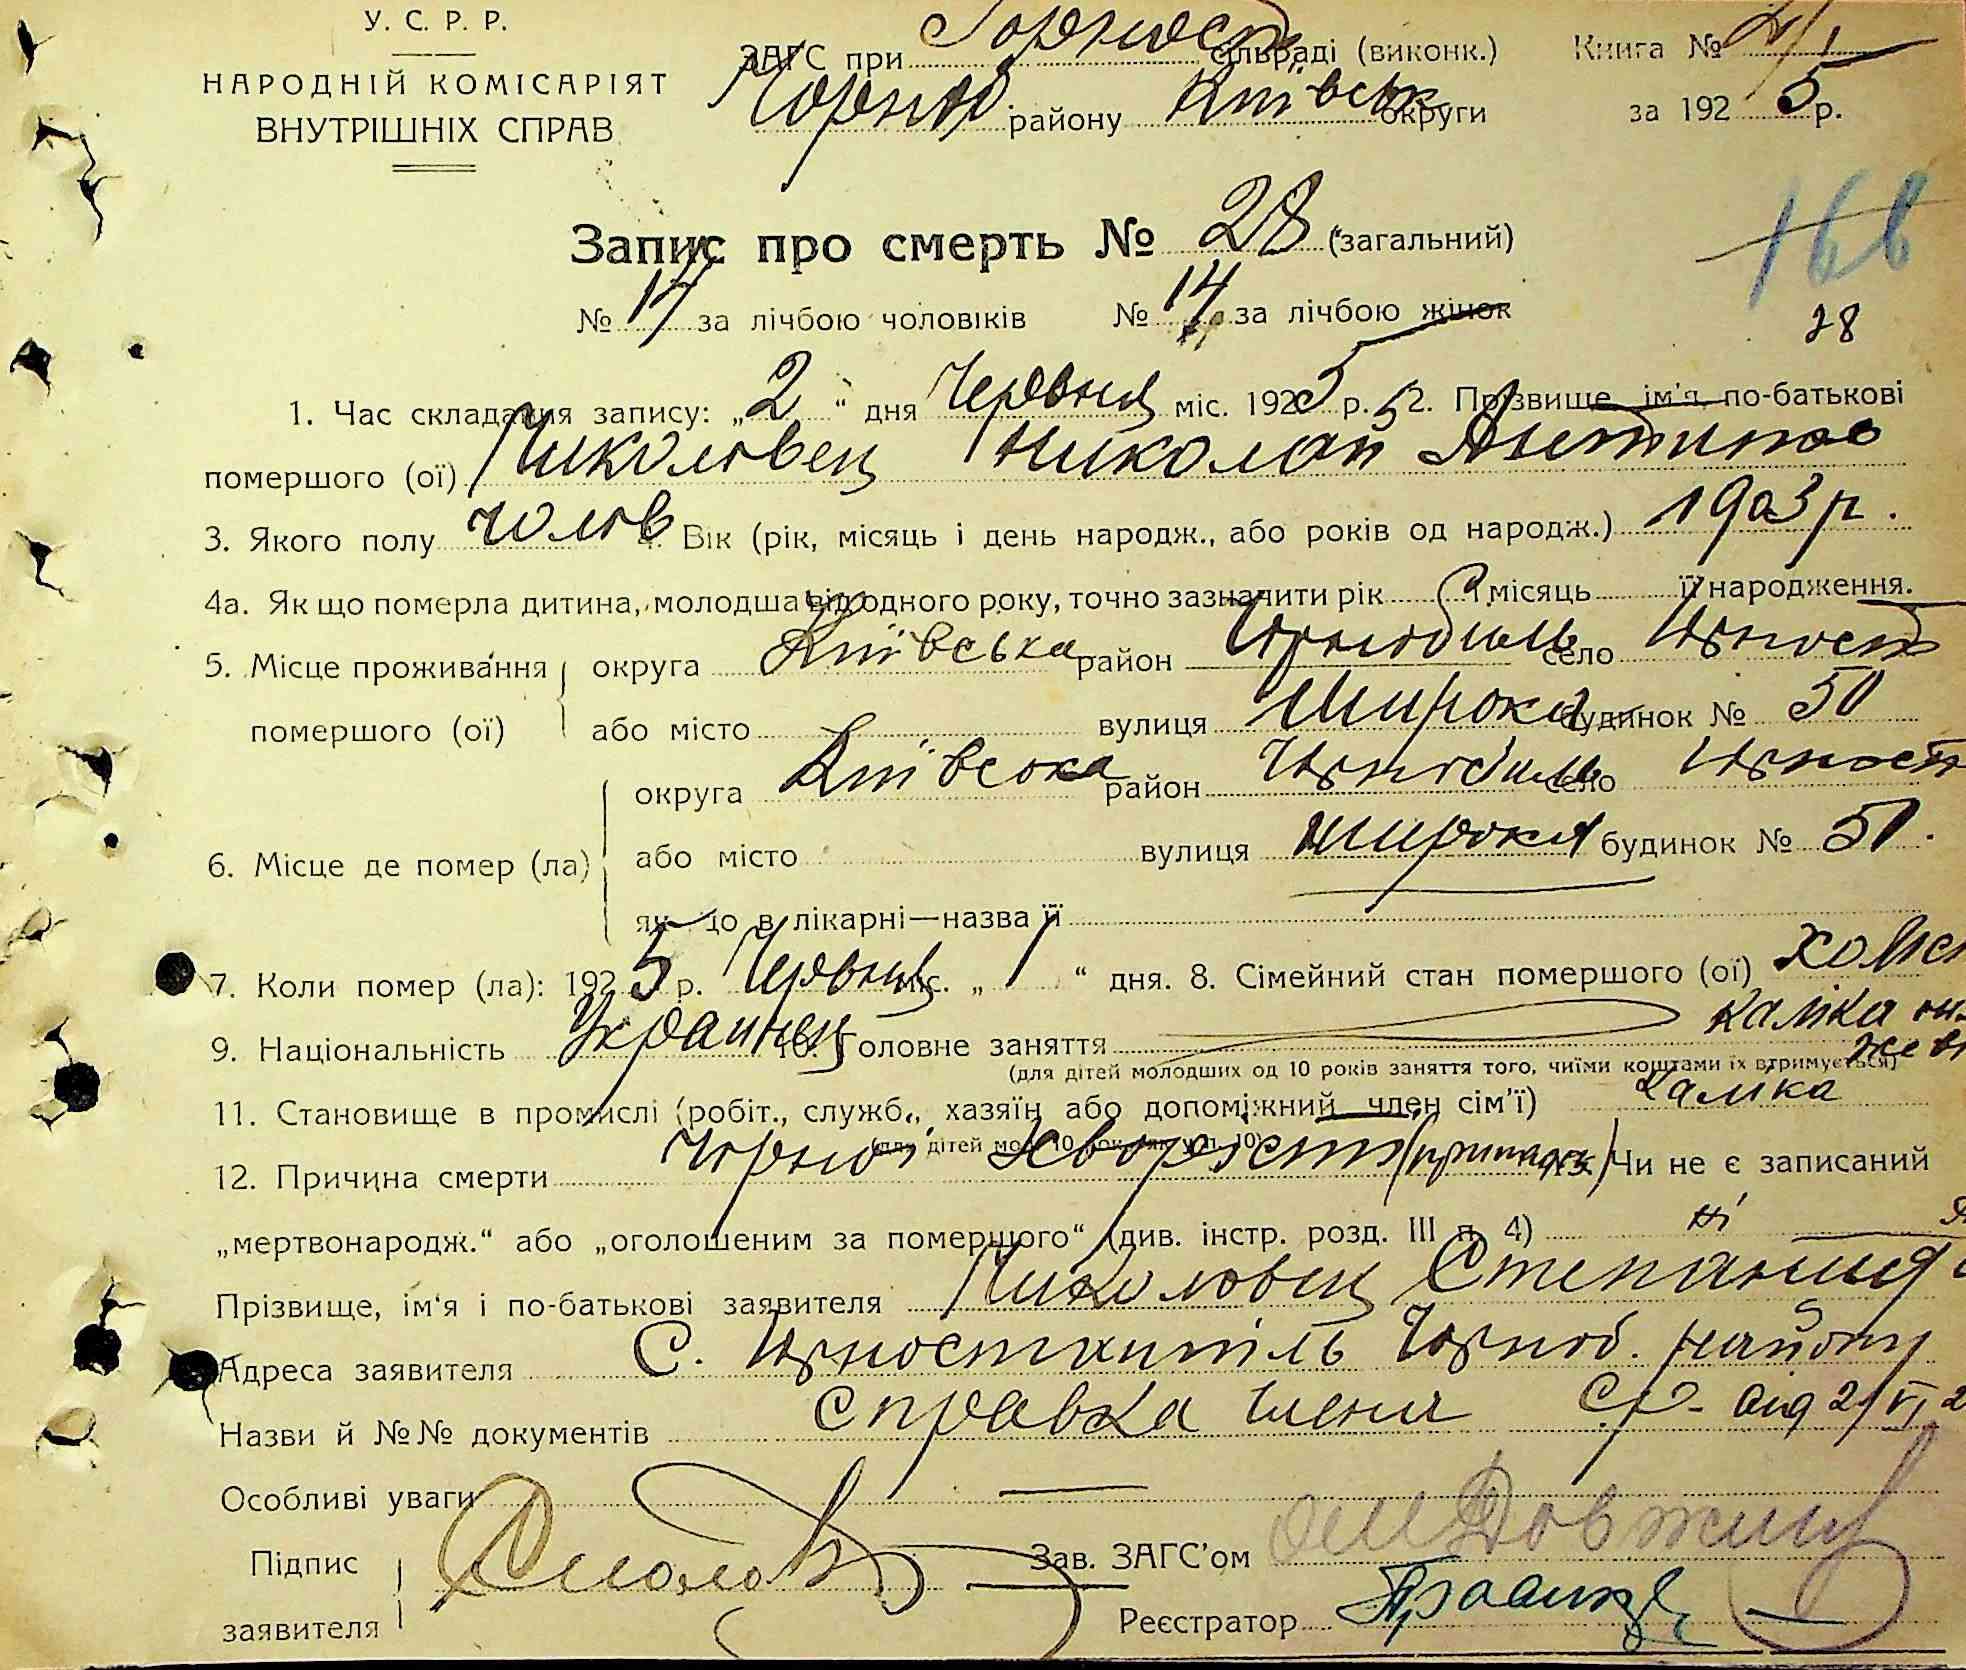 У. С. Р. Р.
НАРОДНІЙ КОМІСАРІЯТ
ВНУТРІШНІХ СПРАВ
ЗАГС при Горност сільраді (виконк.) Книга № 2/1
Чорноб. району Київськ округи за 1925 р.
Запис про смерть № 28 (загальний)
166
№ 14 за лічбою чоловіків № 14 за лічбою жінок
28
1. Час складання запису: „2“ дня Червня міс. 1925 р. 2. Прізвище, ім'я, по-батькові
помершого (ої) Николовец Николай Антипов
3. Якого полу чолов 4. Вік (рік, місяць і день народж., або років од народж.) 1903 р.
4а. Як що померла дитина, молодша від одного року, точно зазначити рік місяць її народження.
5. Місце проживання округа Київська район Чорнобиль село
помершого (ої) або місто вулиця Широка будинок № 50
округа Київська район Чорнобиль село
6. Місце де помер (ла) або місто вулиця Широка будинок №
як що в лікарні—назва її
7. Коли помер (ла): 1925 р. Червня міс. „1“ дня. 8. Сімейний стан помершого (ої)
9. Національність Украинец 10. Головне заняття
(для дітей молодших од 10 років заняття того, чиїми коштами їх втримується)
11. Становище в промислі (робіт., служб., хазяїн або допоміжний член сім'ї)
(для дітей мол. 10 рок. як у п. 10)
12. Причина смерти Чорної хворости Чи не є записаний
„мертвонародж.“ або „оголошеним за помершого“ (див. інстр. розд. III п. 4) ні
Прізвище, ім'я і по-батькові заявителя Николовец Степанида
Адреса заявителя С. Чорноб. району
Назви й №№ документів Справка члена С/Р від 2/VI 2
Особливі уваги
Підпис Зав. ЗАГС'ом
заявителя Реєстратор